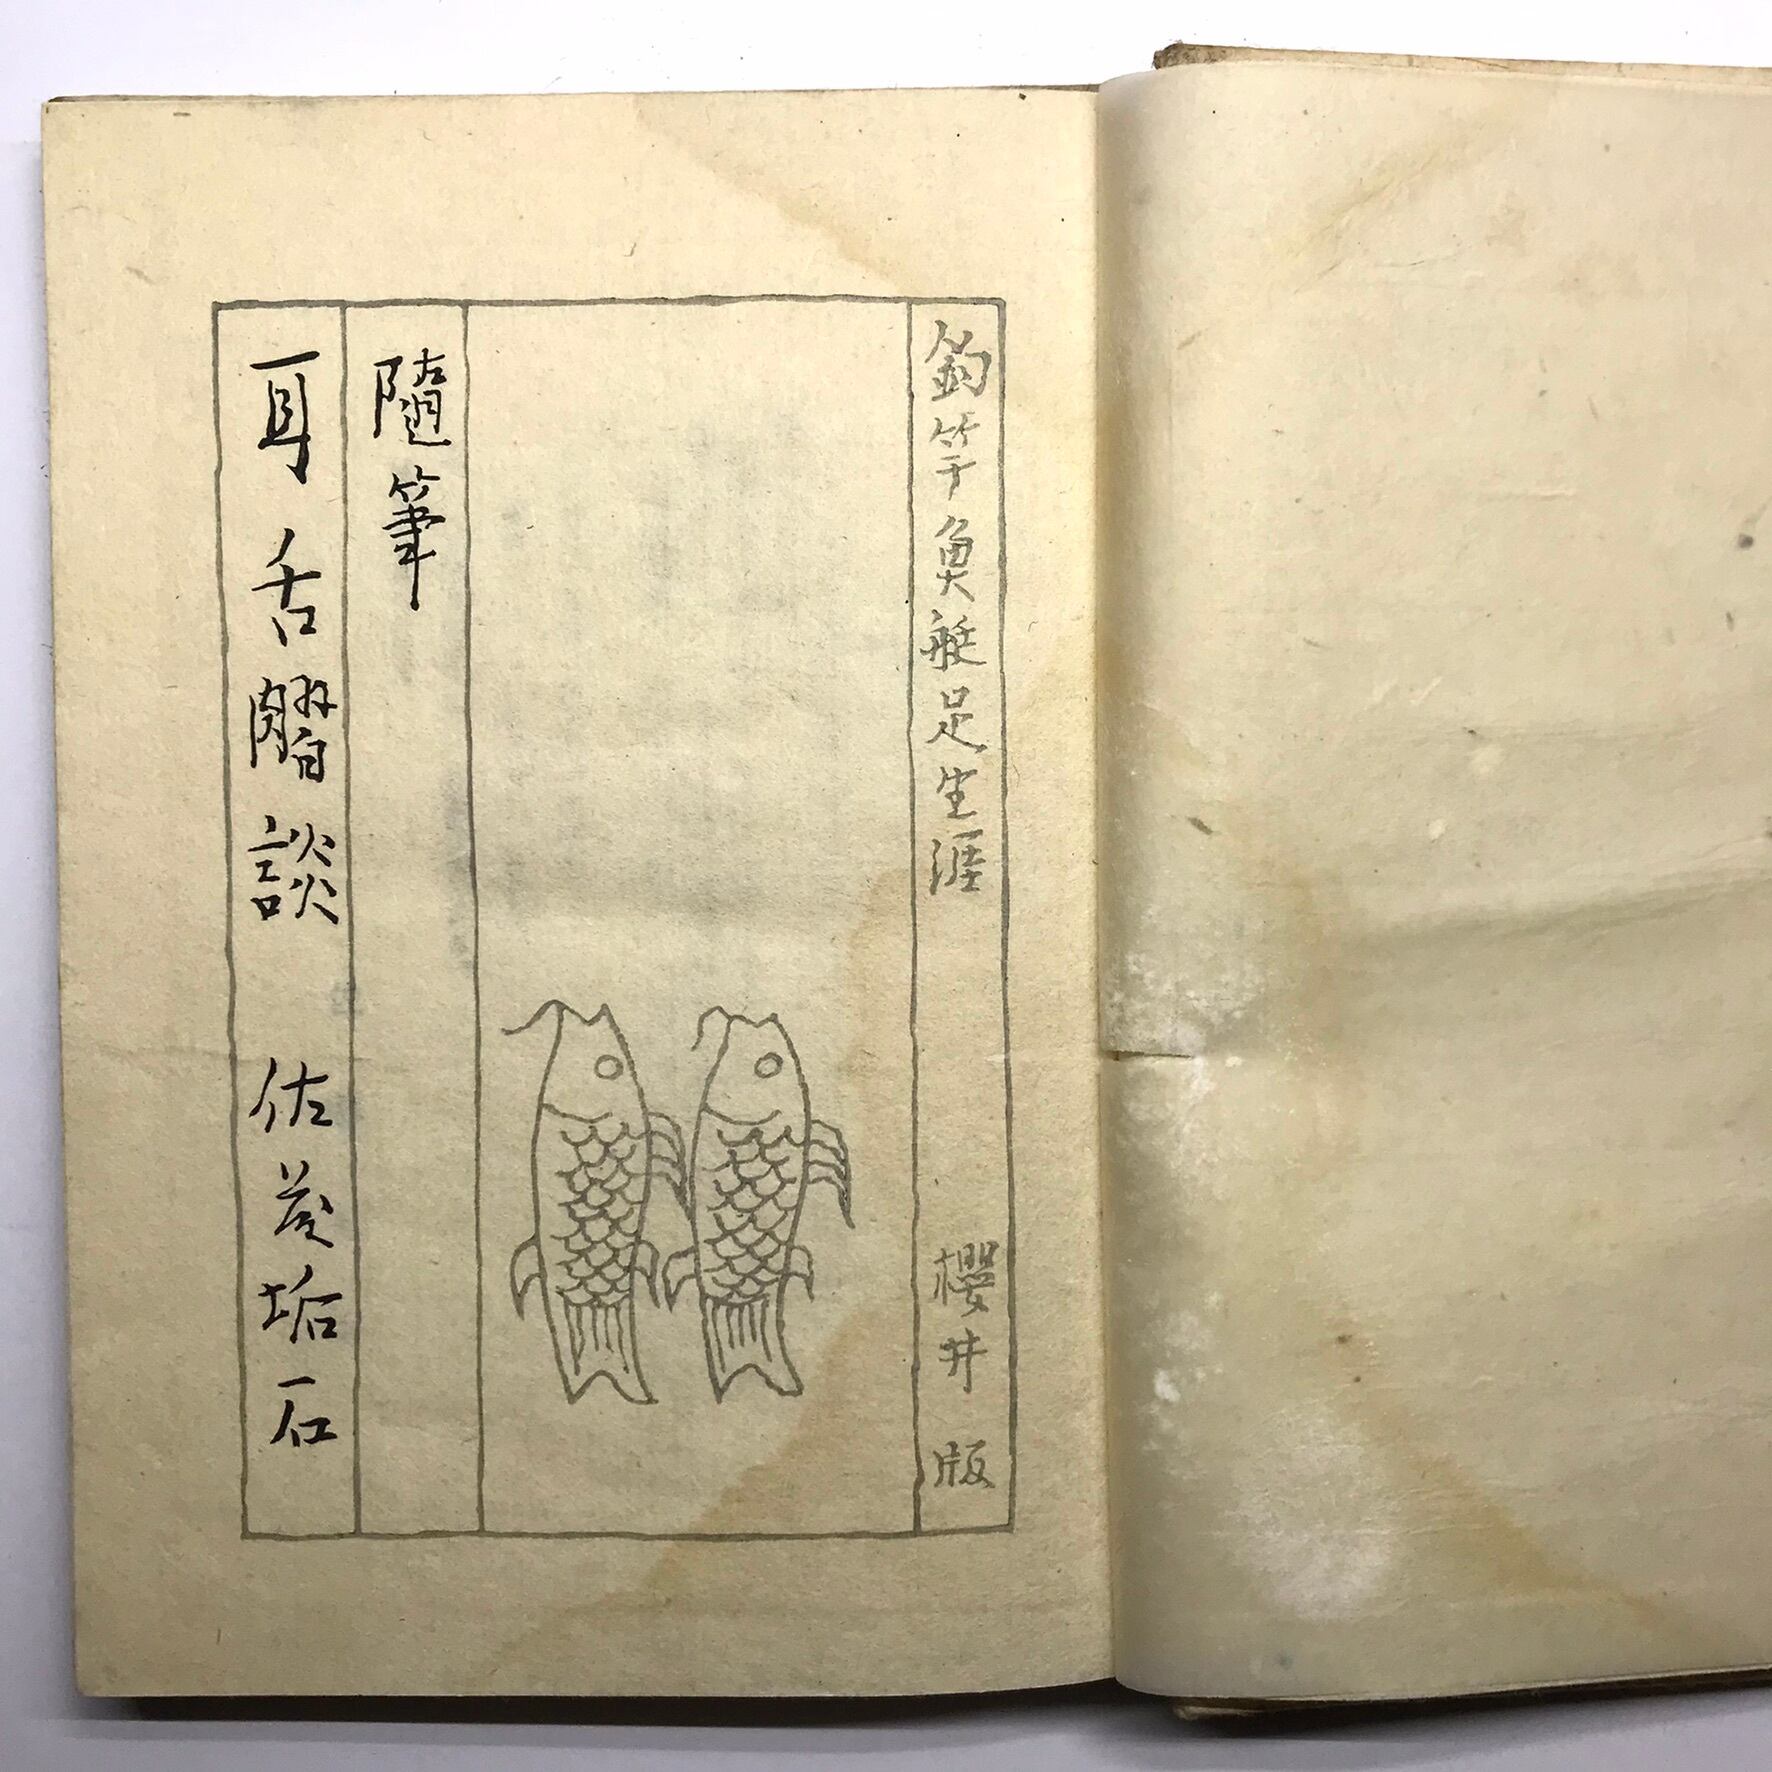 釣竿魚艇足生涯 櫻井 版
隨筆
耳舌 談 佐藤垢石